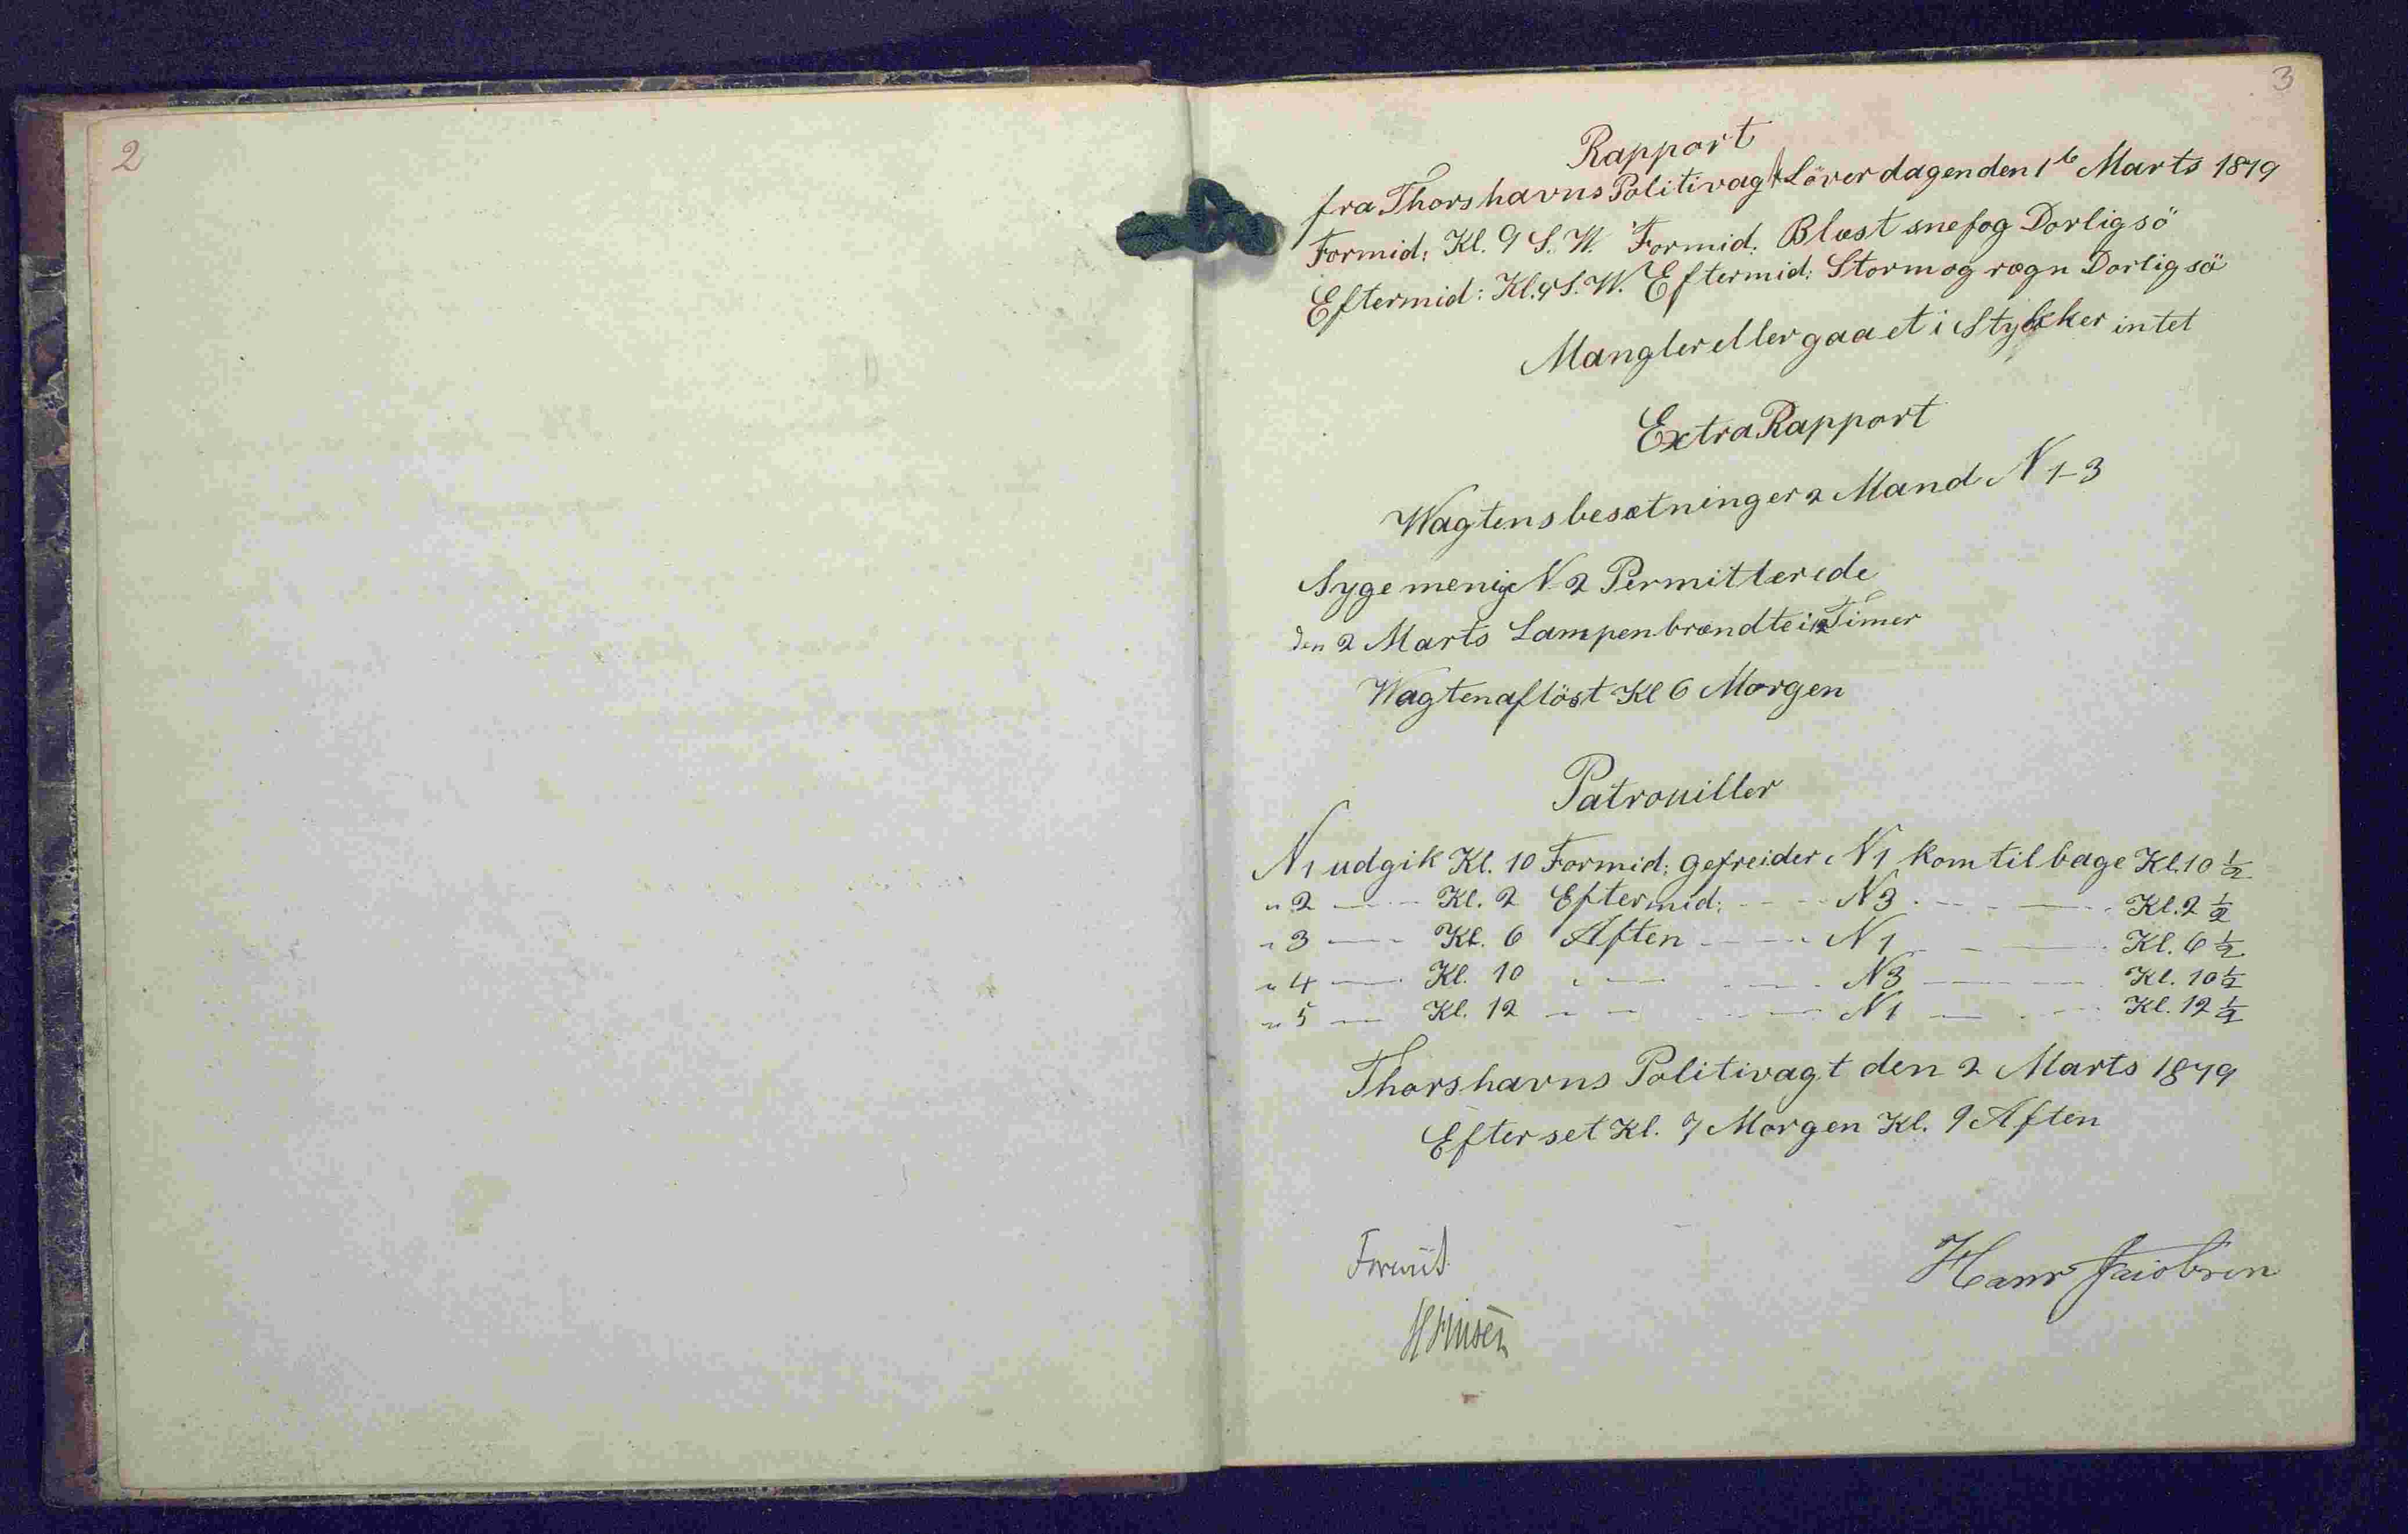 2
3
Rapport
fra Thorshavns Politivagt Löverdagen den 1ᵗᵉ Marts 1879
Formid: Kl. 9 S. W. Formid: Blæst snefog Dorlig sö
Eftermid: Kl. 4 S. W. Eftermid: Storm og rægn Dorlig sö
Mangler eller gaaet i Stykker intet
Extra Rapport
Wagtens besætning er 2 Mand N 1-3
Syge menig N 2 Permitterede
den 2 Marts Lampen brændte i 12 Timer
Wagten aflöst Kl 6 Morgen
Patrouiller
N 1 udgik Kl. 10 Formid: Gefreider N 1 kom tilbage Kl. 10 ½
" 2 — Kl. 2 Eftermid: — N 3 — Kl. 2 ½
" 3 — Kl. 6 Aften — N 1 — Kl. 6 ½
" 4 — Kl. 10 — — N 3 — Kl. 10 ½
" 5 — Kl. 12 — — N 1 — Kl. 12 ½
Thorshavns Politivagt den 2 Marts 1879
Efterset Kl. 7 Morgen Kl. 9 Aften
Forevist
Hans Jacobsen
HFinsen